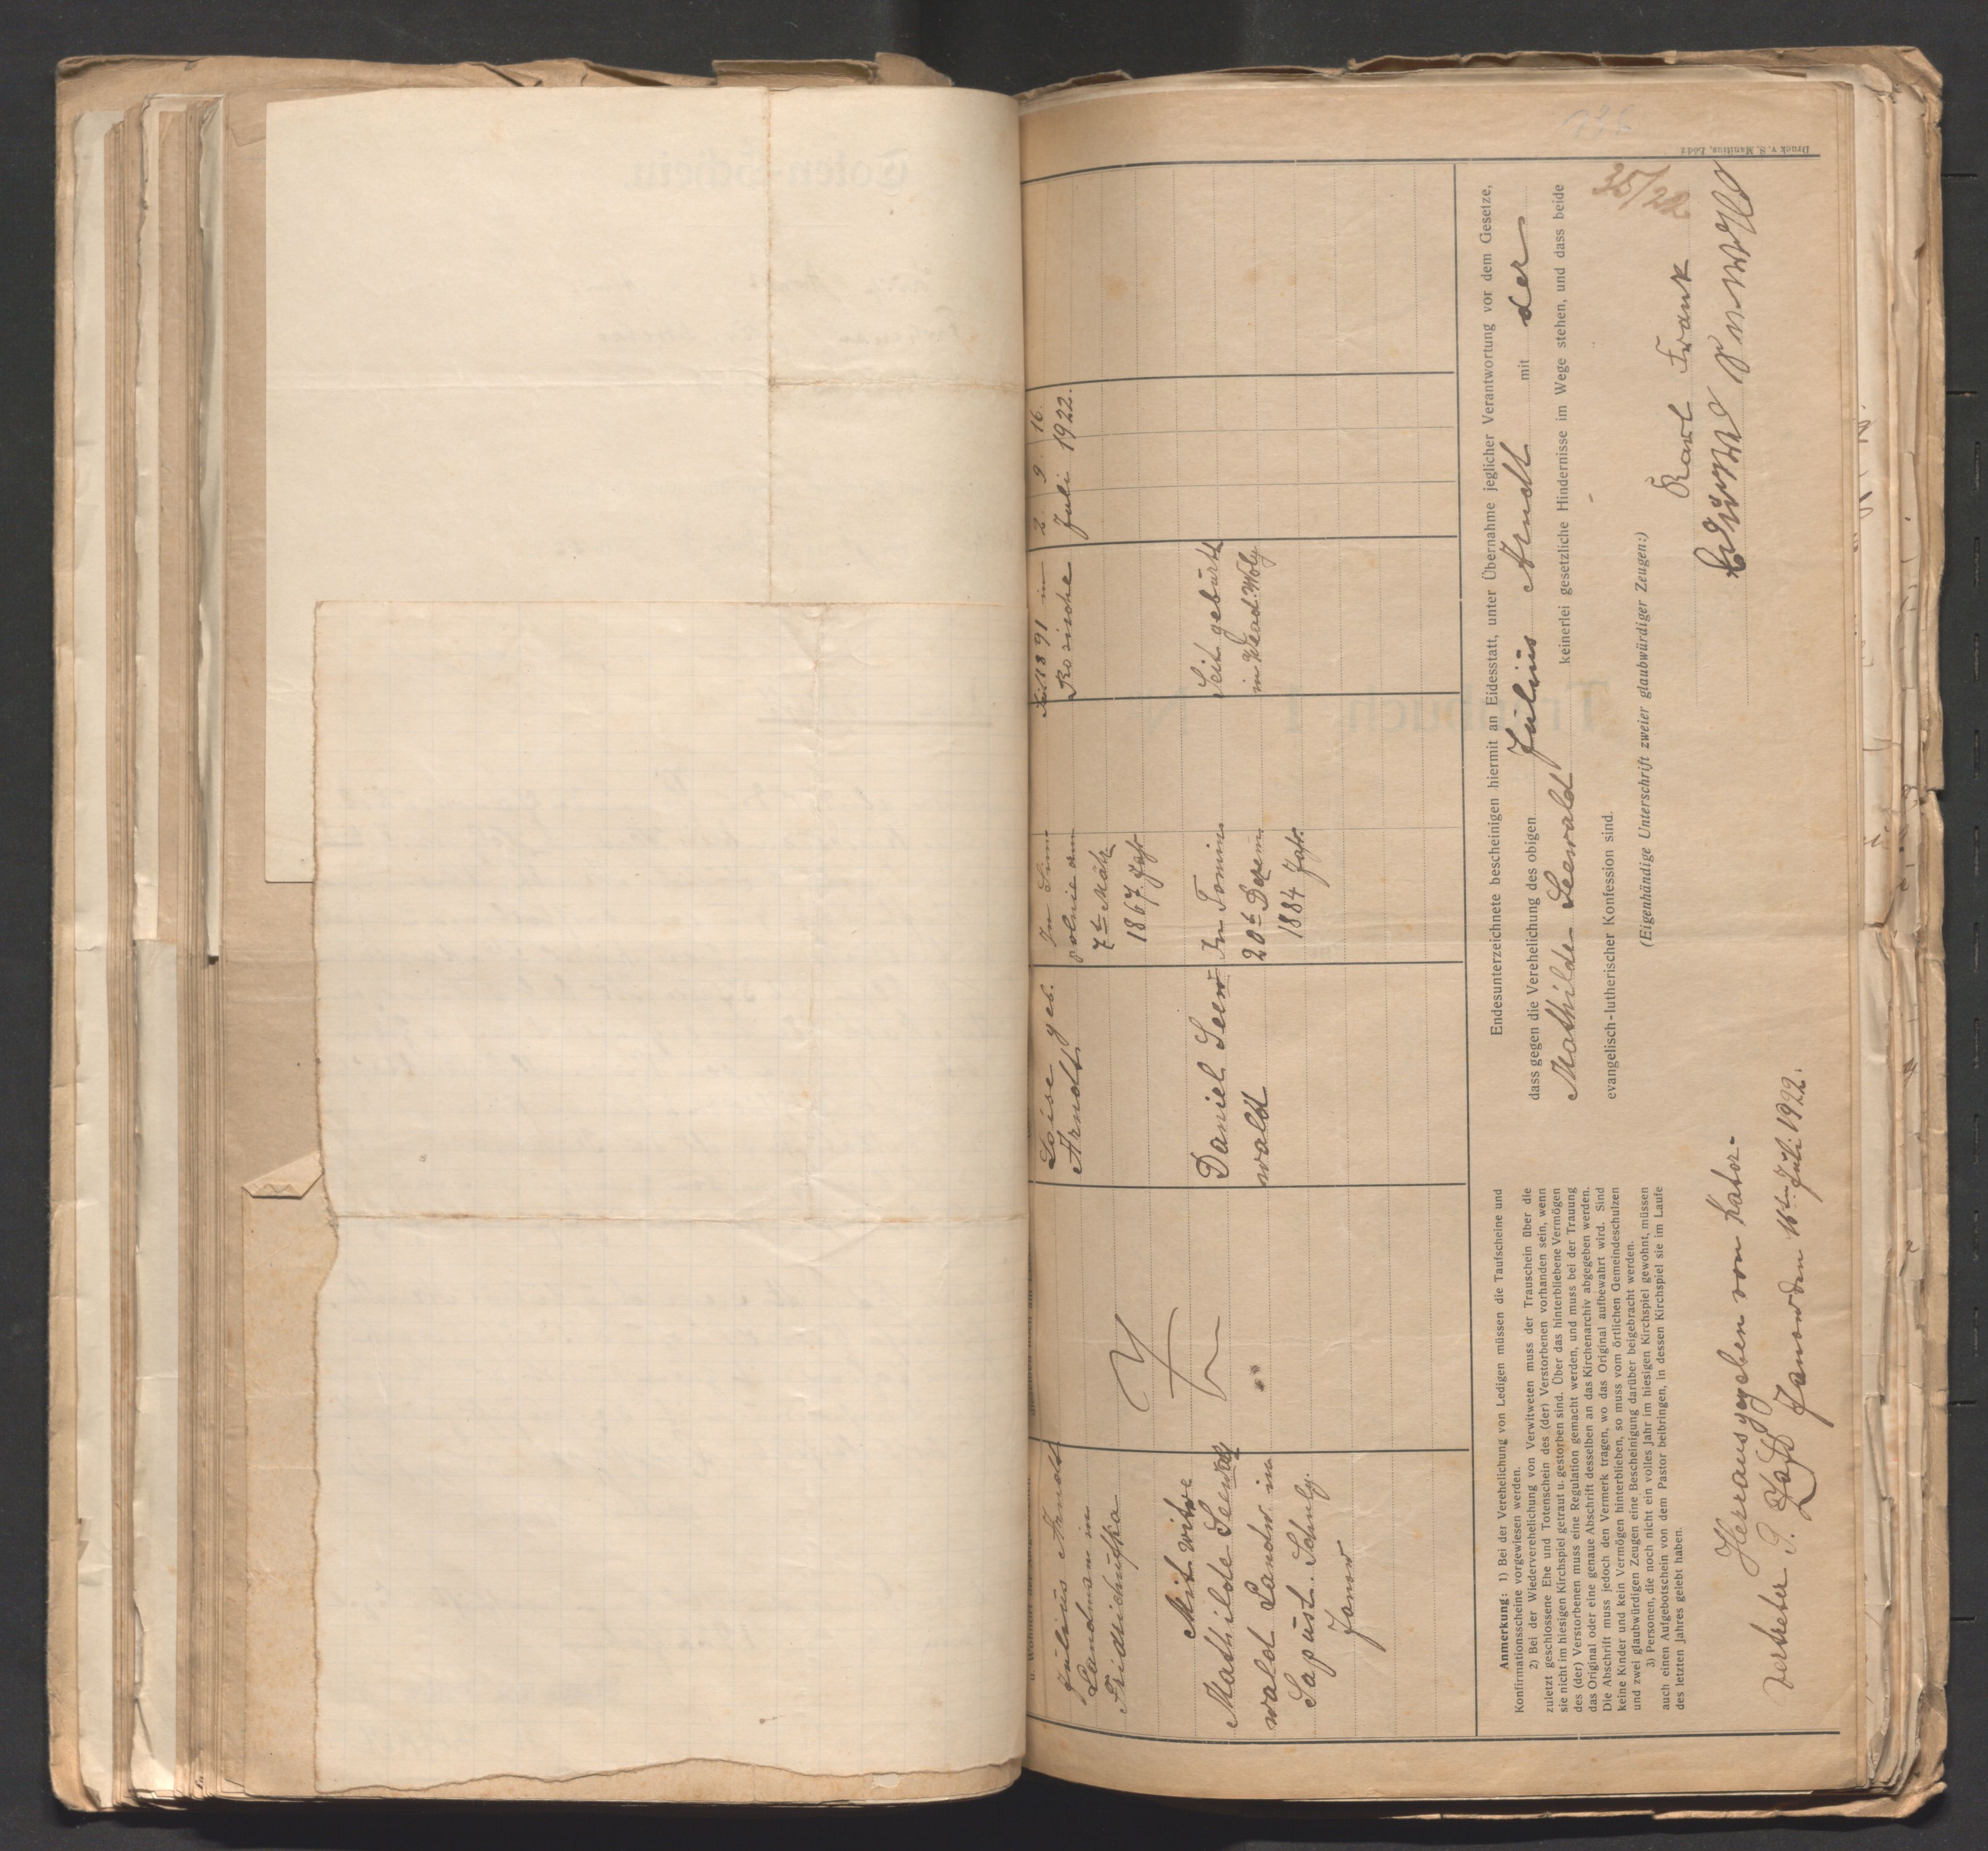 Julius Arndt
Landmann in
Fridrichufka
Mit witwe
Mathilde Seewald
wald Landw. in
Sapust. Schulg.
Janow
Loise geb.
Arndt
Daniel Seew
wald
polnie am
7t März
1867. Jahr
In Tomin
20t Dezem
1884 Jahr.
Seit 1891 in
Rozische
Seit geburth
in Wlad. Woly.
2. 9. 16.
Juli 1922.
Anmerkung: 1) Bei der Verehelichung von Ledigen müssen die Taufscheine und
Konfirmationsscheine vorgewiesen werden.
2) Bei der Wiederverehelichung von Verwitweten muss der Trauschein über die
zuletzt geschlossene Ehe und Totenschein des (der) Verstorbenen vorhanden sein, wenn
sie nicht im hiesigen Kirchspiel getraut u. gestorben sind. Über das hinterbliebene Vermögen
des (der) Verstorbenen muss eine Regulation gemacht werden, und muss bei der Trauung
das Original oder eine genaue Abschrift desselben an das Kirchenarchiv abgegeben werden.
Die Abschrift muss jedoch den Vermerk tragen, wo das Original aufbewahrt wird. Sind
keine Kinder und kein Vermögen hinterblieben, so muss vom örtlichen Gemeindeschulzen
und zwei glaubwürdigen Zeugen eine Bescheinigung darüber beigebracht werden.
3) Personen, die noch nicht ein volles Jahr im hiesigen Kirchspiel gewohnt, müssen
auch einen Aufgebotschein von dem Pastor beibringen, in dessen Kirchspiel sie im Laufe
des letzten Jahres gelebt haben.
Endesunterzeichnete bescheinigen hiermit an Eidesstatt, unter Übernahme jeglicher Verantwortung vor dem Gesetze,
dass gegen die Verehelichung des obigen Julius Arndt mit der
Mathilde Seewald keinerlei gesetzliche Hindernisse im Wege stehen, und dass beide
evangelisch-lutherischer Konfession sind.
(Eigenhändige Unterschrift zweier glaubwürdiger Zeugen:)
35/22
Karl Frank
Herrausgegeben von Kator-
Janow den 16ten Juli 1922.
Druck v. S. Manitius, Łódź